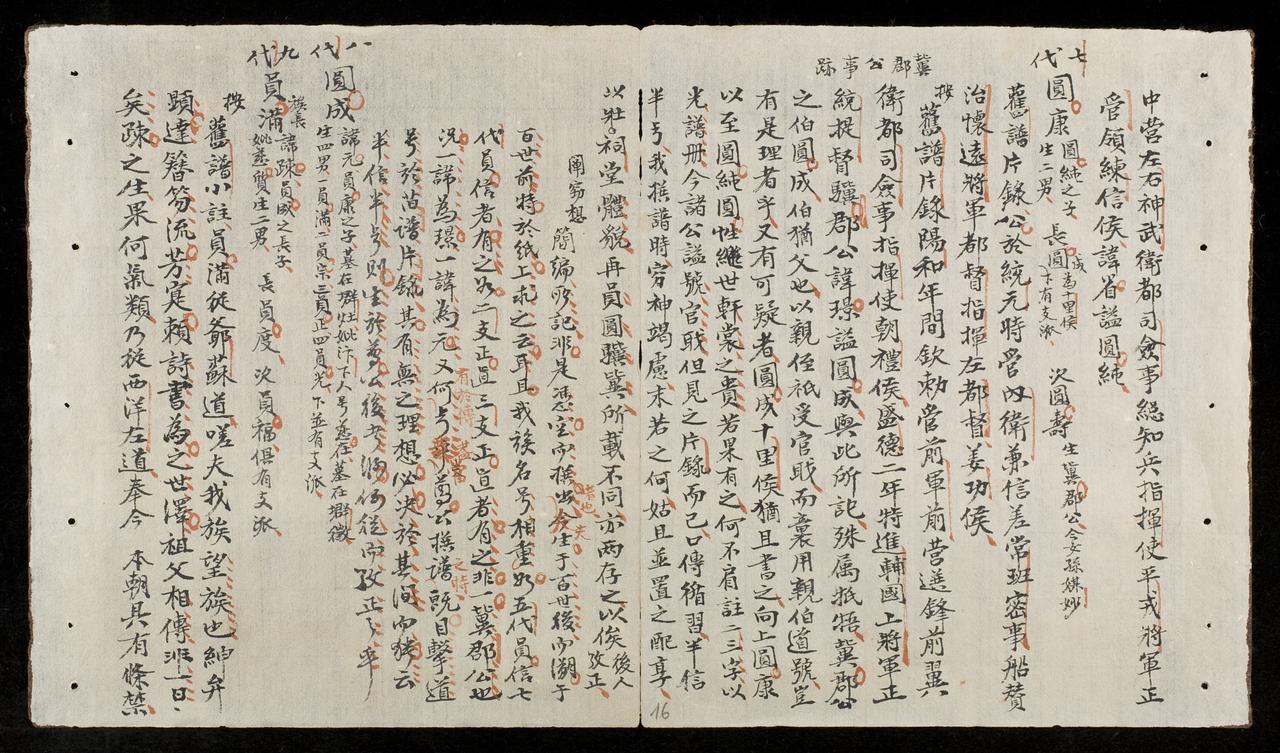 中营左右神武衛都司僉事総知兵指揮使平戎將軍正
管領練信侯諱省謚圓純
七代 圓康 圓純之子 生二男 長圓成為十里侯 下有支派 次圓壽 生冀郡公
舊譜片錄公於統元時管內衛兼信差常班密事船贊
治懷遠將軍都督指揮左都督姜功侯
冀郡公事跡
按舊譜片錄陽和年間欽勅管前軍前营遞鋒前翼
衛都司僉事指揮使朝禮侯盛德二年特進輔國上將軍正
統提督驥郡公諱璟謚圓成與此所記殊属抵牾冀郡公
之伯圓成伯猶父也以親侄祇受官戝而襄用親伯道號豈
有是理者乎又有可疑者圓成十里侯猶且書之向上圓康
以至圓純圓性繼世軒裳之貴若果有之何不肩註二三字以
光譜册今諸公謚號官戝但見之片錄而已口傳循習半信
半亐我撰譜時穷神竭慮未若之何姑且並置之配享
以壯祠堂體貌再員圓驥冀所載不同亦両存之以俟後人攷正
闡窃想簡編所記非是憑空而撰出於生于百世後而溯于
百世前特於紙上求之云耳且我族名号相重如五代員信七
代員信者有之如二支正直三支正直者有之非一冀郡公也
况一諱為璟一諱為元又何亐乎尊公撰譜既目擊道
号於苗譜片錄其有無之理想必决於其间而猶云
半信半亐則生於尊公後者將何從而攷正乎
八代 圓成 諱元員康之子墓在
生四男一員滿二員宗三員正四員光下並有支派
九代 員滿 族長諱踈員成之長子
妣慈質生二男 長員度 次員福俱有支派
按舊譜小註員滿従爺蘇道嗟夫我族望族也紳弁
顕達簪笏流芳寔賴詩書為之世澤祖父相傳非一日
矣踈之生果何氣類乃従西洋左道奉今 本朝具有條禁
16